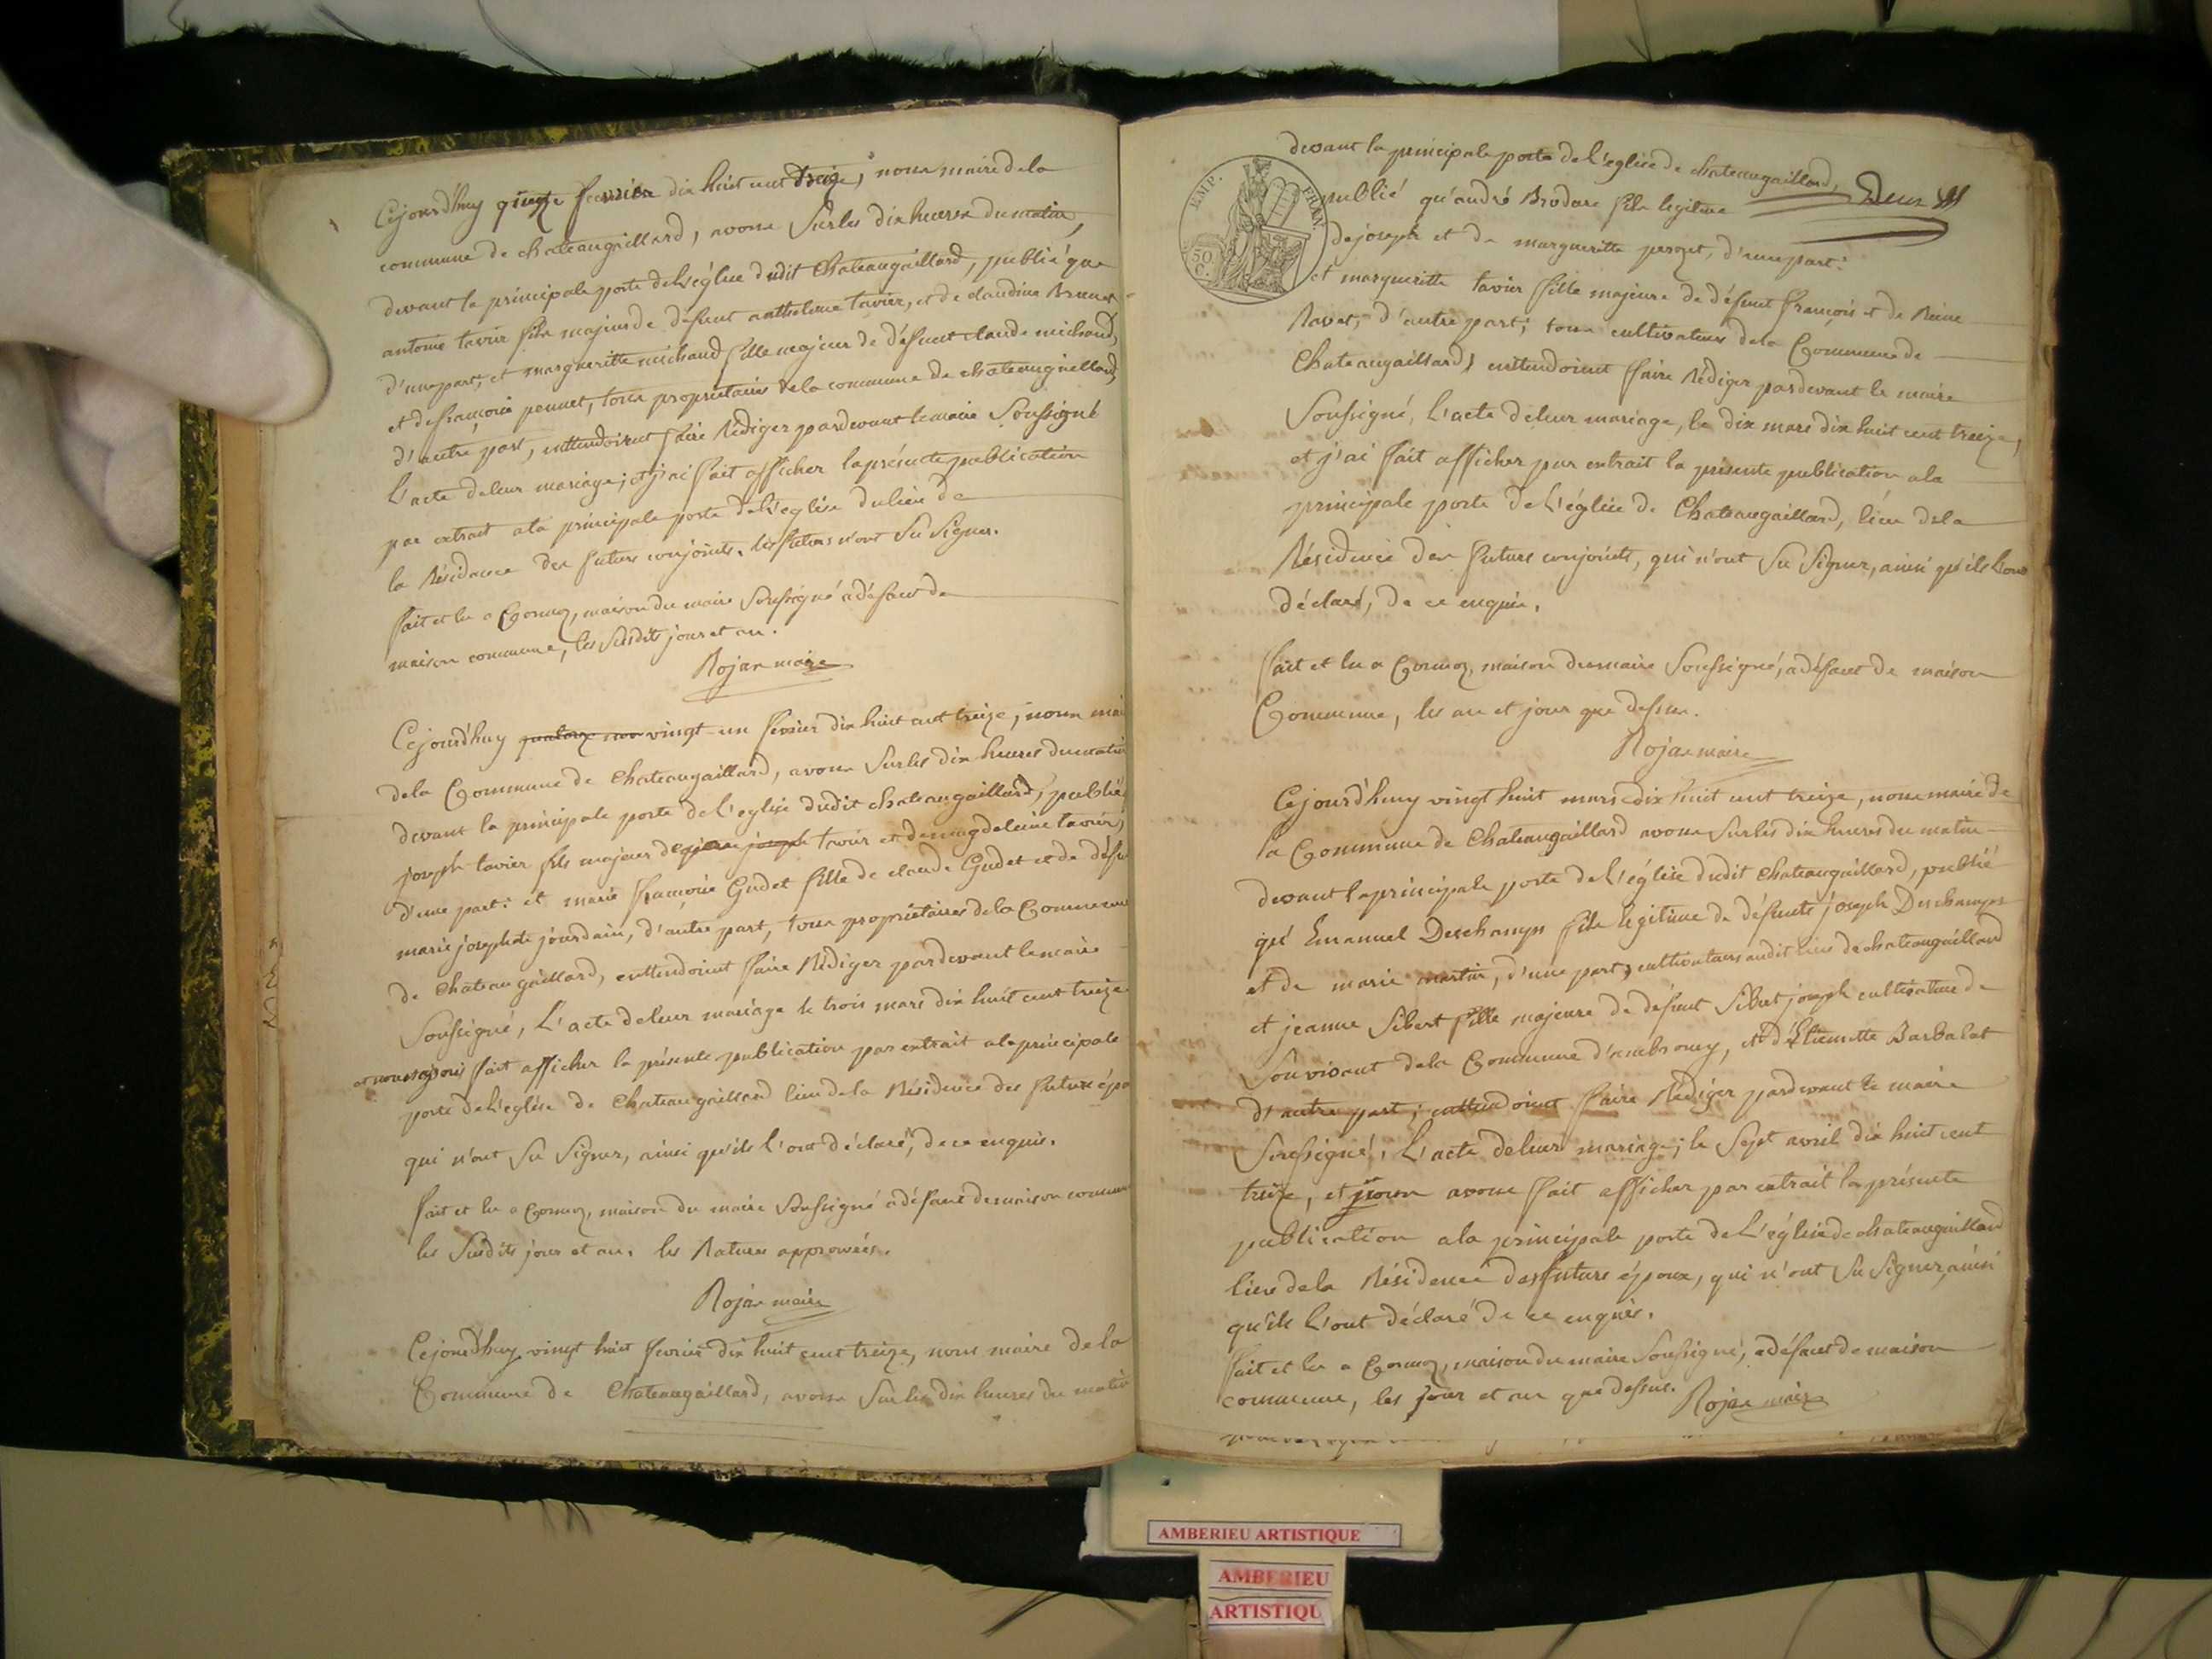 Cejourd'huy quinze fevrier dix huit cent treize, nous maire dela
commune de chateaugaillard, avons Sur les dix heures du matin,
devant la principale porte de L'église dudit Chateaugaillard, publié que
antoine tavier fils majeur de défunt anthelme tavier, et de claudine Brunet
d'une part, et margueritte michaud fille majeur de défunt claude michaud,
et de françoise pennet, tous proprietaires dela commune de chateaugaillard,
d'autre part, enttendoient faire Rédiger pardevant le maire Soussigné
L'acte deleur mariage, et j'ai fait afficher la présente publication
par extrait ala principale porte de L'eglise du lieu de
la Résidence des futurs conjoints. les futurs n'ont Su Signer.
fait et lu a Cormoz, maison du maire Soussigné a défaut de
maison commune, les Susdits jour et an.
Rojas maire
Cejourd'huy vingt-un fevrier dix huit cent treize, nous mai
dela Commune de Chateaugaillard, avons Sur les dix heures du matin
devant la principale porte de L'eglise dudit chateaugaillard, publié
joseph tavier fils majeur de pierre joseph tavier et de magdeleine tavier,
d'une part: et marie françoise Gudet fille de claude Gudet et de défu
marie josephte jourdain, d'autre part, tous proprietaires dela Commune
de Chateaugaillard, enttendoient faire Rédiger pardevant le maire
Soussigné, L'acte deleur mariage le trois mars dix huit cent treize
et nous avons fait afficher la présente publication par extrait ala principale
porte de L'eglise de Chateaugaillard lieu dela Résidence des futurs épo
qui n'ont Su Signer, ainsi qu'ils l'ont déclaré, de ce enquis.
fait et lu a Cormoz, maison du maire Soussigné a défaut de maison commun
les Susdits jour et an. les Ratures approuvées.
Rojas maire
Cejourd'huy vingt huit fevrier dix huit cent treize, nous maire de la
Commune de Chateaugaillard, avons Sur les dix heures du matin
devant la principale porte de L'eglise de chateaugaillard,
Deux
EMP. FRAN.
50 C.
publié qu'andré Brodare fils legitime
de joseph et de margueritte perozet, d'une part:
et margueritte tavier fille majeure de défunt françois et de Reine
Ravet, d'autre part; tous cultivateurs dela Commune de
Chateaugaillard, enttendoient faire Rédiger pardevant le maire
Soussigné, L'acte deleur mariage, le dix mars dix huit cent treize,
et j'ai fait afficher par extrait la présente publication ala
principale porte de L'église de Chateaugaillard, lieu dela
Résidence des futurs conjoints, qui n'ont Su Signer, ainsi qu'ils L'ont
déclaré, de ce enquis.
fait et lu a Cormoz, maison du maire Soussigné, a défaut de maison
Commune, les an et jour que dessus.
Rojas maire
Cejourd'huy vingt huit mars dix huit cent treize, nous maire de
la Commune de Chateaugaillard avons Sur les dix heures du matin
devant la principale porte de L'église dudit Chateaugaillard, publié
qu'Emanuel Deschamps fils legitime de défunts joseph Deschamps
et de marie martin, d'une part, cultivateurs audit lieu de chateaugaillard
et jeanne Sibert fille majeure de défunt Sibert joseph cultivateur de
Son vivant dela Commune d'ambronay, et d'Etiennette Barbalat
d'autre part; enttendoient faire Rédiger pardevant le maire
Soussigné, L'acte deleur mariage, le Sept avril dix huit cent
treize, et nous avons fait afficher par extrait la présente
publication ala principale porte de L'église de chateaugaillard
lieu dela Résidence des futurs époux, qui n'ont Su Signer, ainsi
qu'ils L'ont déclaré de ce enquis.
fait et lu a Cormoz, maison du maire Soussigné, a défaut de maison
commune, les jour et an que dessus. Rojas maire
AMBERIEU ARTISTIQUE
AMBERIEU
ARTISTIQU